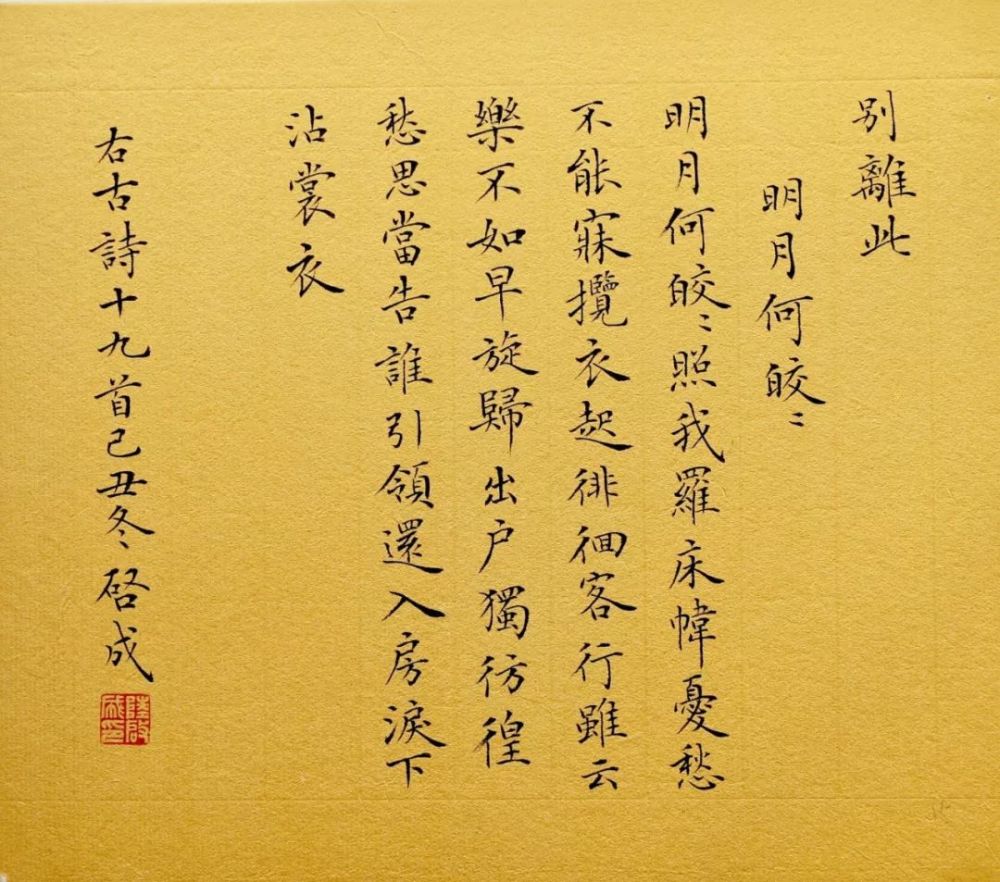 別離此
明月何皎〻
明月何皎〻照我羅床幃憂愁
不能寐攬衣起徘徊客行雖云
樂不如早旋歸出户獨彷徨
愁思當告誰引領還入房淚下
沾裳衣
右古詩十九首己丑冬啓成
陸啓成印